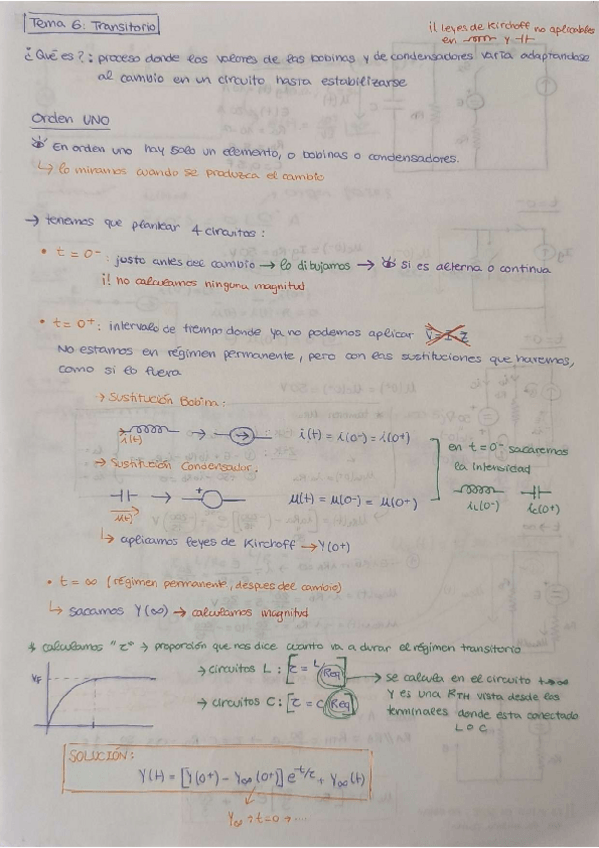 Tema 6: Transitorio
¡! leyes de Kirchoff no aplicables
en y
¿Qué es?: proceso donde los valores de las bobinas y de condensadores varía adaptandose
al cambio en un circuito hasta estabilizarse
Orden UNO
En orden uno hay solo un elemento, o bobinas o condensadores.
↳ lo miramos cuando se produzca el cambio
→ tenemos que plantear 4 circuitos:
• t = 0⁻ : justo antes del cambio → lo dibujamos → si es alterna o continua
¡! no calculamos ninguna magnitud
• t = 0⁺ : intervalo de tiempo donde ya no podemos aplicar V = I · Z
No estamos en régimen permanente, pero con las sustituciones que haremos,
como si lo fuera
→ Sustitución Bobina:
i(t) → : i(t) = i(0⁻) = i(0⁺)
→ Sustitución Condensador:
u(t) → u(t) = u(0⁻) = u(0⁺)
en t = 0⁻ sacaremos
la intensidad
iL(0⁻) ic(0⁻)
↳ aplicamos leyes de Kirchoff → Y(0⁺)
• t = ∞ (régimen permanente, despues del cambio)
↳ sacamos Y(∞) → calculamos magnitud
* calculamos "τ" → proporción que nos dice cuanto va a durar el régimen transitorio
VF
→ circuitos L : [τ = L/Req]
→ circuitos C : [τ = C·Req]
→ se calcula en el circuito t→∞
Y es una RTH vista desde los
terminales donde esta conectado
L o C
SOLUCIÓN:
Y(t) = [Y(0⁺) − Y∞(0⁺)] e^-t/τ + Y∞(t)
Y∞ → t=0 → ....